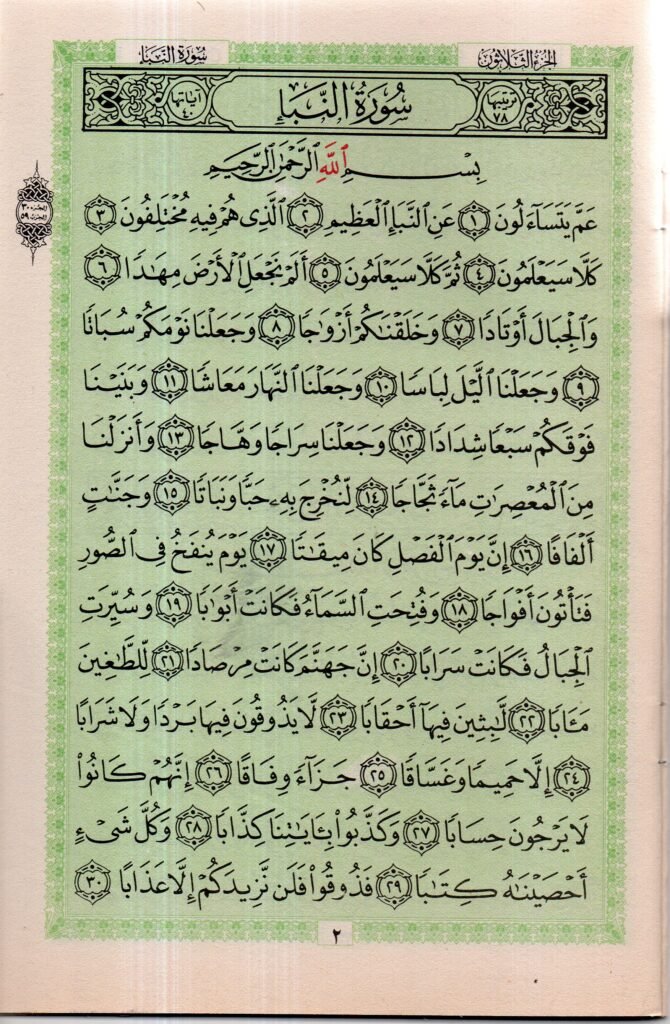 الجزء الثلاثون
سورة النبإ
ترتيبها ٧٨
سُورَةُ النَّبَإِ
آياتها ٤٠
بِسْمِ ٱللَّهِ ٱلرَّحْمَٰنِ ٱلرَّحِيمِ
عَمَّ يَتَسَآءَلُونَ ١ عَنِ ٱلنَّبَإِ ٱلْعَظِيمِ ٢ ٱلَّذِى هُمْ فِيهِ مُخْتَلِفُونَ ٣
كَلَّا سَيَعْلَمُونَ ٤ ثُمَّ كَلَّا سَيَعْلَمُونَ ٥ أَلَمْ نَجْعَلِ ٱلْأَرْضَ مِهَٰدًا ٦
وَٱلْجِبَالَ أَوْتَادًا ٧ وَخَلَقْنَٰكُمْ أَزْوَٰجًا ٨ وَجَعَلْنَا نَوْمَكُمْ سُبَاتًا
٩ وَجَعَلْنَا ٱلَّيْلَ لِبَاسًا ١٠ وَجَعَلْنَا ٱلنَّهَارَ مَعَاشًا ١١ وَبَنَيْنَا
فَوْقَكُمْ سَبْعًا شِدَادًا ١٢ وَجَعَلْنَا سِرَاجًا وَهَّاجًا ١٣ وَأَنزَلْنَا
مِنَ ٱلْمُعْصِرَٰتِ مَآءً ثَجَّاجًا ١٤ لِّنُخْرِجَ بِهِۦ حَبًّا وَنَبَاتًا ١٥ وَجَنَّٰتٍ
أَلْفَافًا ١٦ إِنَّ يَوْمَ ٱلْفَصْلِ كَانَ مِيقَٰتًا ١٧ يَوْمَ يُنفَخُ فِى ٱلصُّورِ
فَتَأْتُونَ أَفْوَاجًا ١٨ وَفُتِحَتِ ٱلسَّمَآءُ فَكَانَتْ أَبْوَٰبًا ١٩ وَسُيِّرَتِ
ٱلْجِبَالُ فَكَانَتْ سَرَابًا ٢٠ إِنَّ جَهَنَّمَ كَانَتْ مِرْصَادًا ٢١ لِّلطَّٰغِينَ
مَـَٔابًا ٢٢ لَّٰبِثِينَ فِيهَآ أَحْقَابًا ٢٣ لَّا يَذُوقُونَ فِيهَا بَرْدًا وَلَا شَرَابًا
٢٤ إِلَّا حَمِيمًا وَغَسَّاقًا ٢٥ جَزَآءً وِفَاقًا ٢٦ إِنَّهُمْ كَانُوا۟
لَا يَرْجُونَ حِسَابًا ٢٧ وَكَذَّبُوا۟ بِـَٔايَٰتِنَا كِذَّابًا ٢٨ وَكُلَّ شَىْءٍ
أَحْصَيْنَٰهُ كِتَٰبًا ٢٩ فَذُوقُوا۟ فَلَن نَّزِيدَكُمْ إِلَّا عَذَابًا ٣٠
الجزء ٣٠
الحزب ٥٩
٢